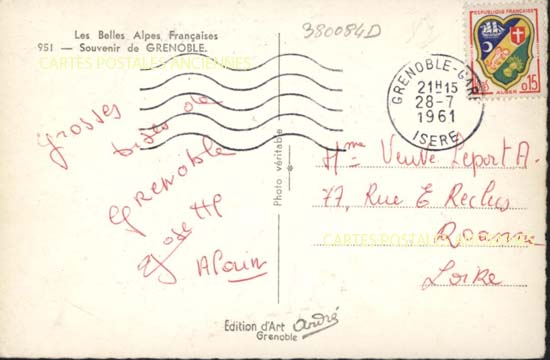 Les Belles Alpes Françaises
951 — Souvenir de GRENOBLE.
CARTES POSTALES ANCIENNES
380084D
REPUBLIQUE FRANÇAISE
ALGER
0,15
GRENOBLE-GARE
21H15
28-7
1961
ISERE
Grosses
bises de
Grenoble
Josette
Alain
Photo véritable
Mme Veuve Leport A.
77, Rue E Reclus
Roanne
CARTES POSTALES ANCIENNES
Loire
Edition d'Art André
Grenoble